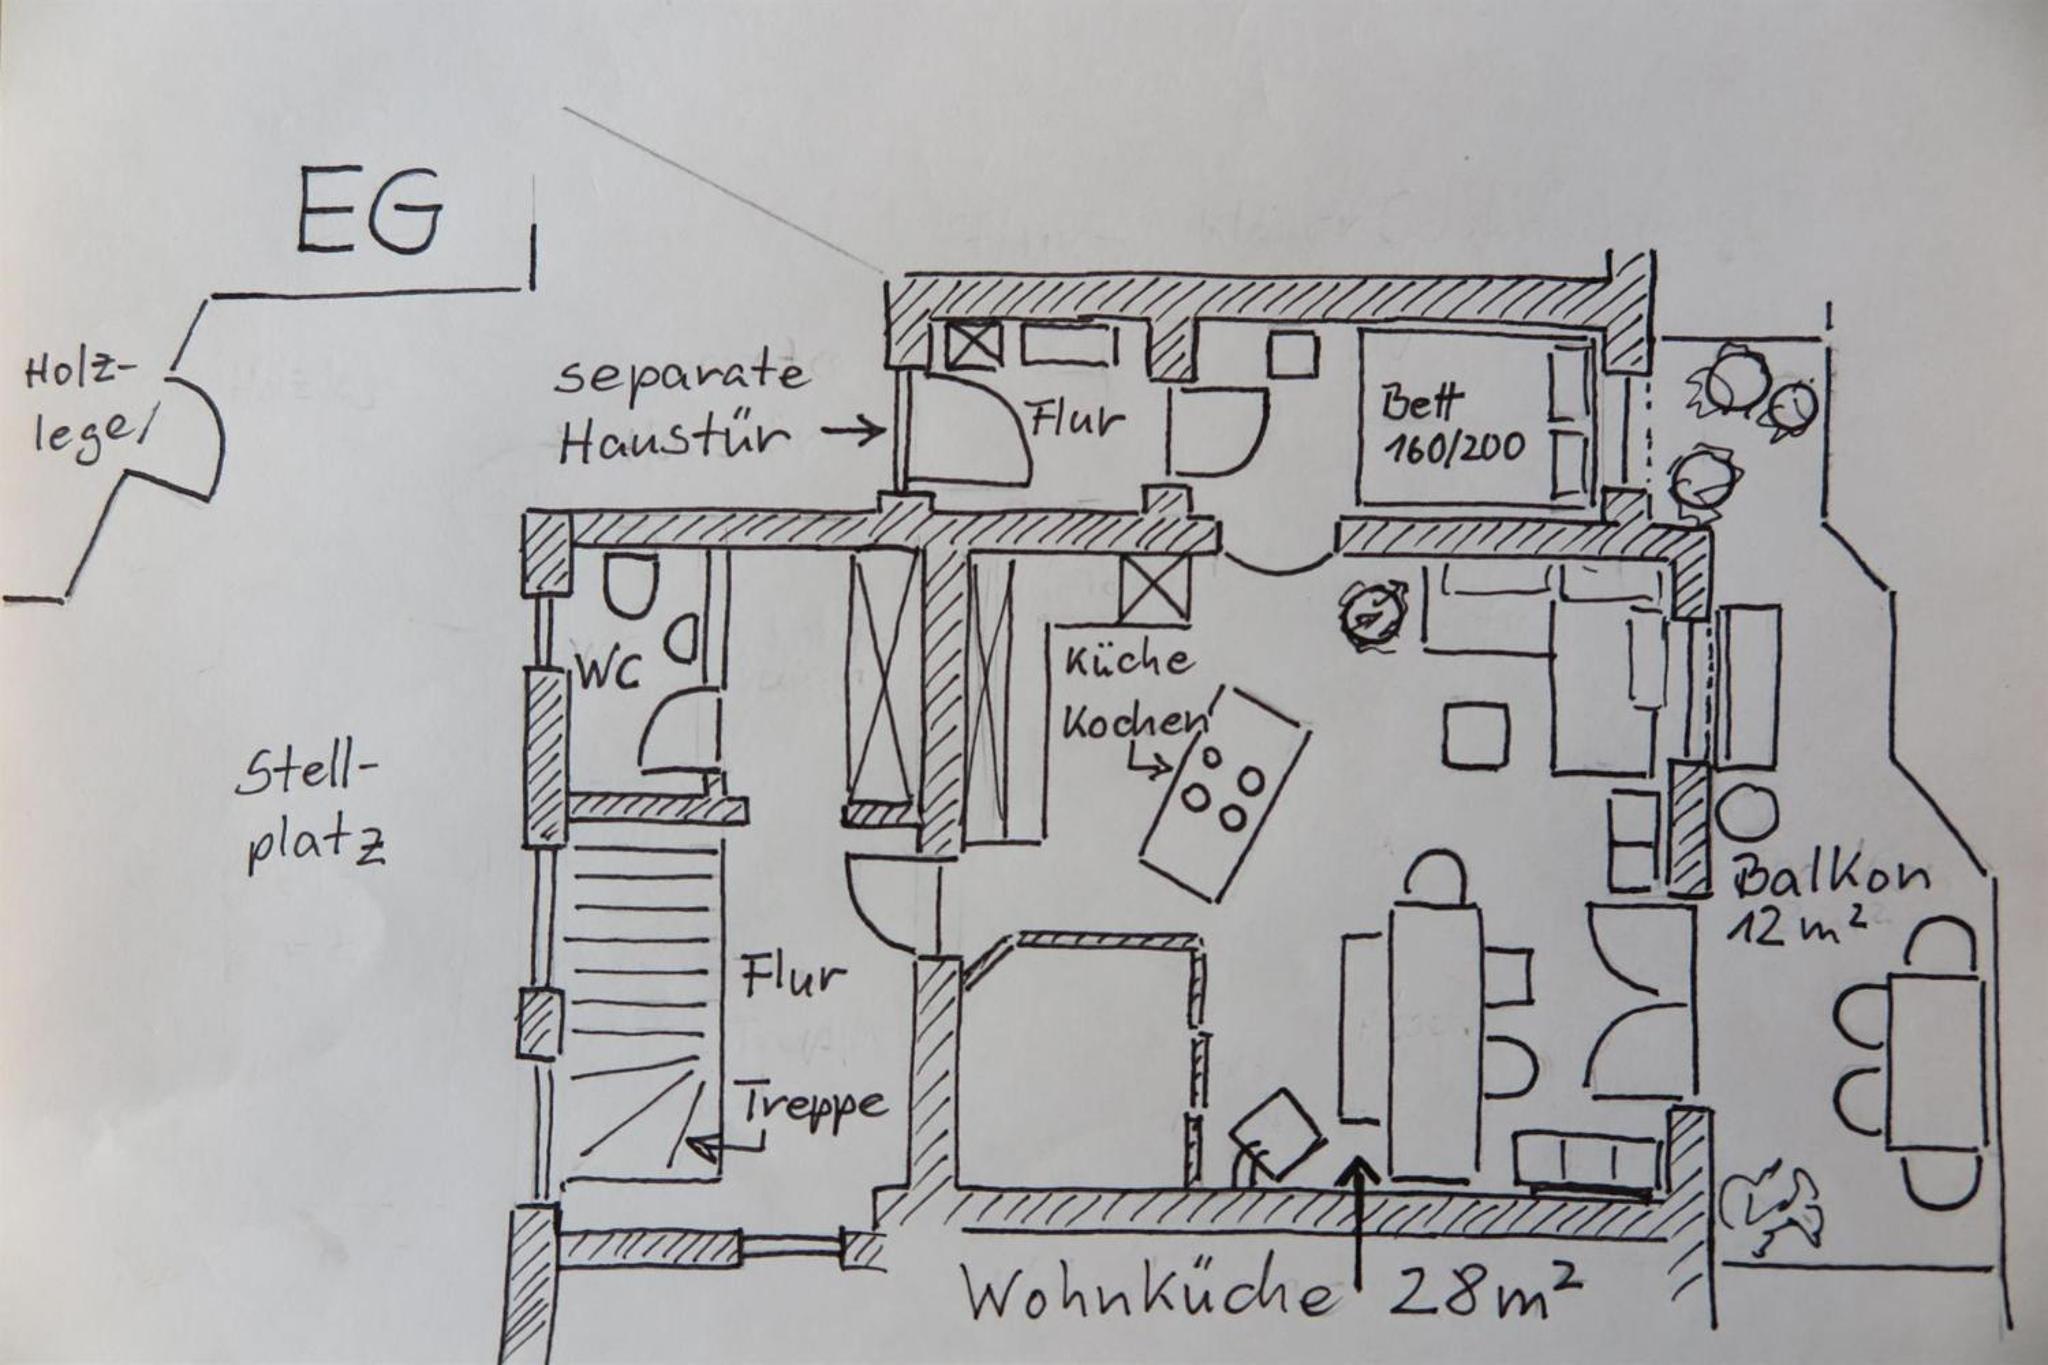 EG
Holz-
lege
separate
Haustür
Flur
Bett
160/200
WC
Küche
Kochen
Stell-
platz
Balkon
12 m²
Flur
Treppe
Wohnküche 28 m²